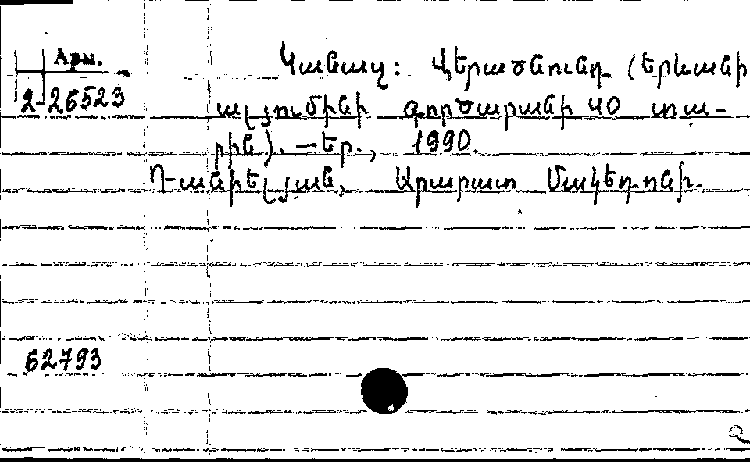 Արм.
2-26523
Կանազ: Վերածնունդ (Երևանի
ալյումինի գործարանի 40 տա-
րին). – Եր., 1990.
Դանիելյան, Արարատ Մակեդոնի.
62793